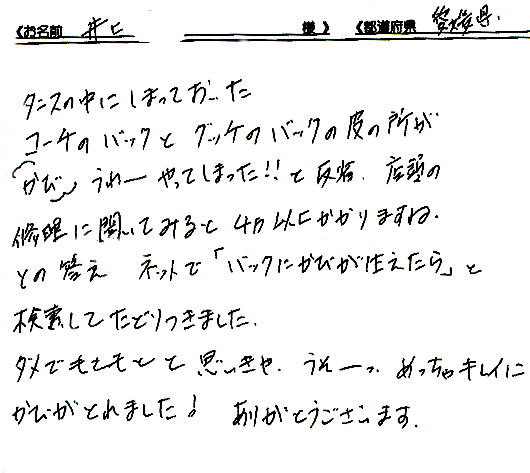 《お名前 井上 様》 《都道府県 愛媛県.
タンスの中にしまっておいた
コーチのバックとグッチのバックの皮の所が
かび うわー やってしまった!! と反省、店頭の
修理に聞いてみると4万以上かかりますね.
との答え ネットで「バックにかびが生えたら」と
検索してたどりつきました.
ダメでもともとと思いきや、うわーっ めっちゃキレイに
かびがとれました! ありがとうございます.